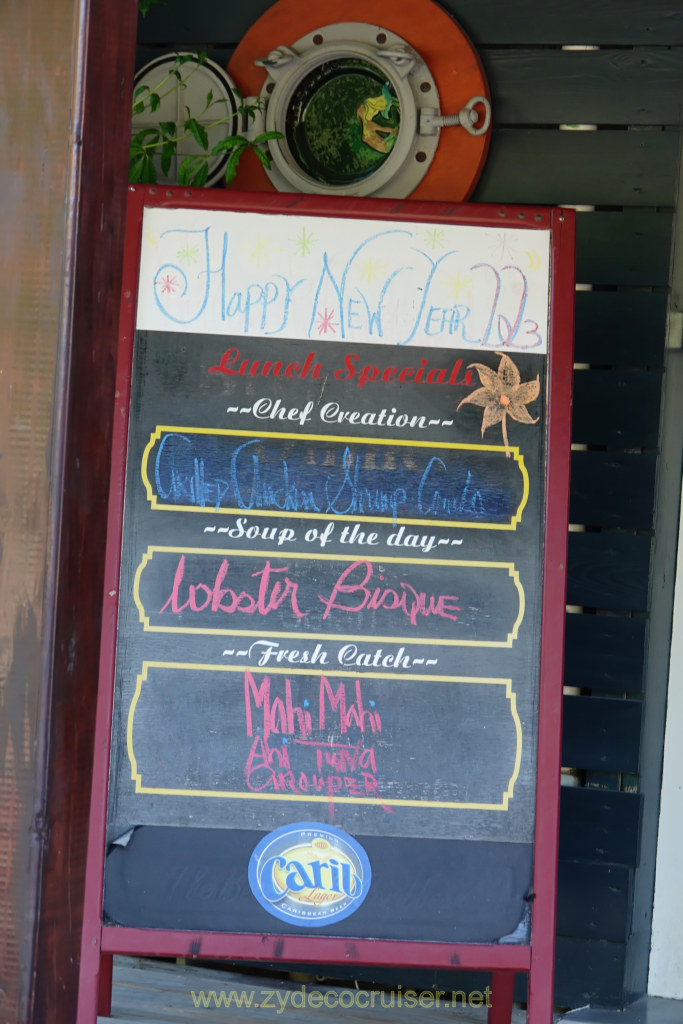 Happy New Year 2023
Lunch Specials
~~Chef Creation~~
Grilled Chicken Shrimp Combo
~~Soup of the day~~
Lobster Bisque
~~Fresh Catch~~
Mahi Mahi
Ahi Tuna
Grouper
PREMIUM
Carib
Lager
CARIBBEAN BEER
www.zydecocruiser.net